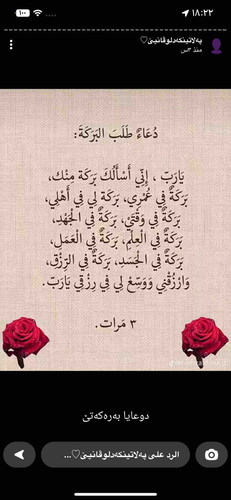 ١٨:٢٢
پەلاتینکەدلوڤانیێ♡
منذ ٣س
دُعَاءُ طَلَبَ البَرَكَةَ:
يَارَبّ ، إِنِّي أَسْأَلُكَ بَرَكَة مِنْك،
بَرَكَةٌ فِي عُمْرِي، بَرَكَة لِي فِي أَهْلِي،
بَرَكَةٌ فِي وَقْتِيْ، بَرَكَةٌ فِي الْجَهْدِ،
بَرَكَةٌ فِي الْعِلْمِ، بَرَكَةٌ فِي الْعَمَلِ،
بَرَكَةٌ فِي الْجَسَدِ، بَرَكَةٌ فِي الرِّزْقِ،
وَارْزُقْنِي وَوَسِّعْ لِي فِي رِزْقِي يَارَبّ.
٣ مَرات.
دوعایا بەرەکەتێ
الرد على پەلاتینکەدلوڤانیێ♡...